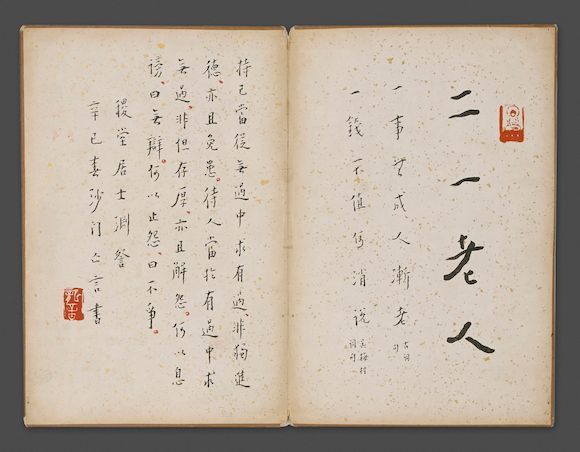 二一老人
一事無成人漸老
一錢不值何消說
吳梅村
持己當從無過中求有過、非獨進
德、亦且免患。待人當於有過中求
無過、非但存厚、亦且解怨。何以息
謗、曰無辯。何以止怨、曰不爭。
稷堂居士淵詧
辛巳春沙門亡言書